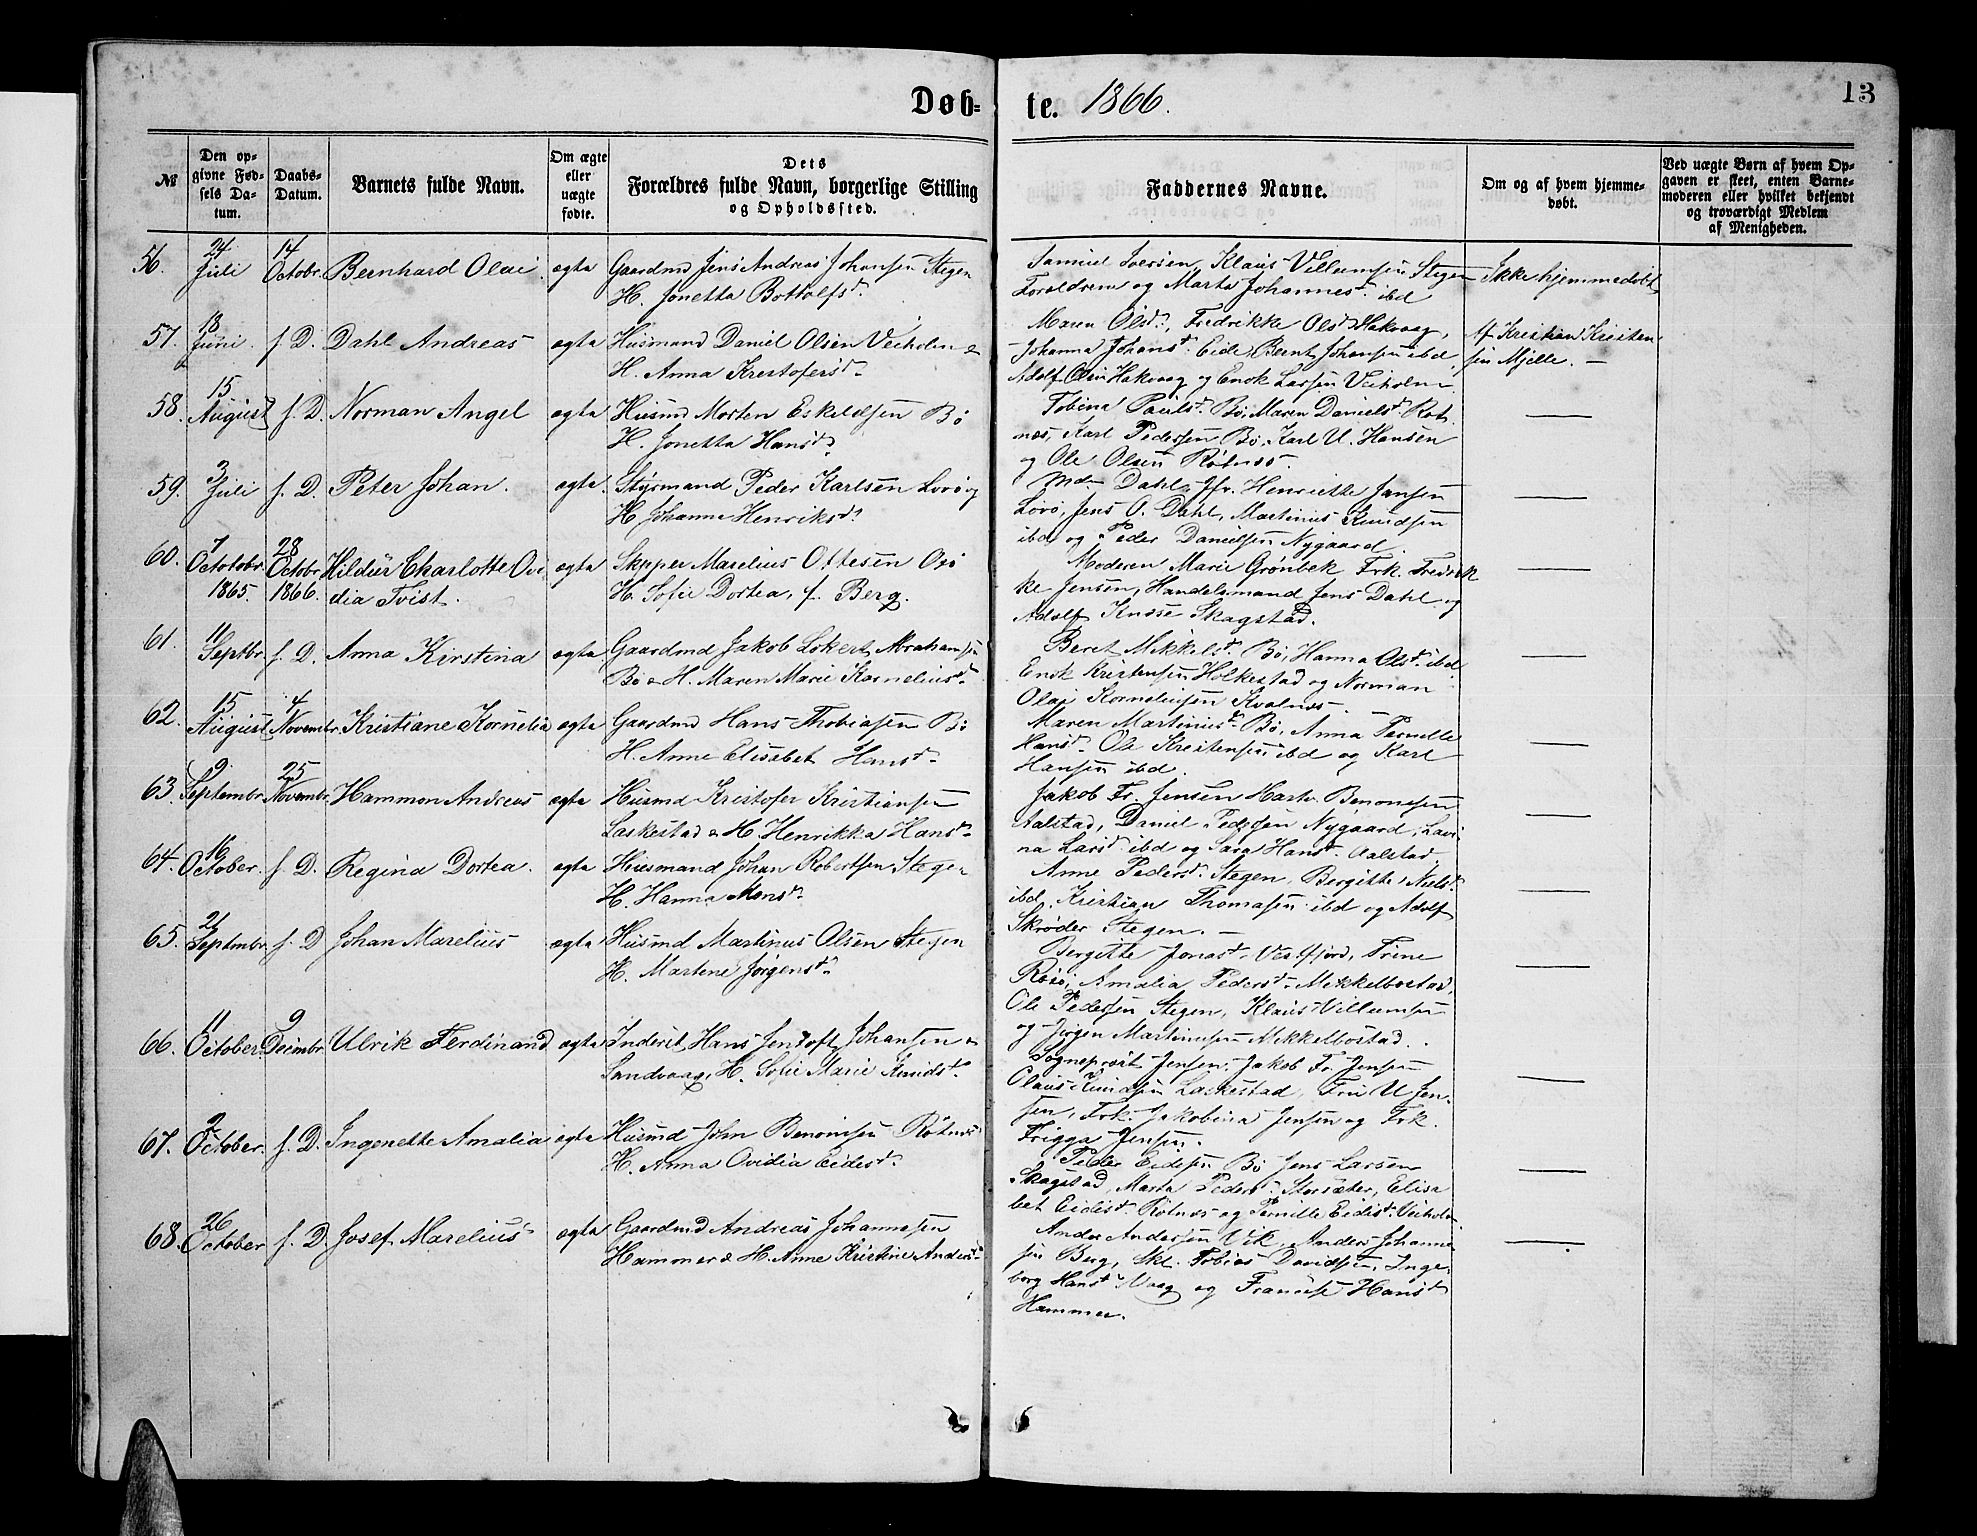 Døb-
te. 1866.
13
№
Den opgivne Fødsels Datum.
Daabs-Datum.
Barnets fulde Navn.
Om ægte eller uægte fødte.
Dets Forældres fulde Navn, borgerlige Stilling og Opholdssted.
Faddernes Navne.
Om og af hvem hjemmedøbt.
Ved uægte Børn af hvem Opgaven er skeet, enten Barnemoderen eller hvilket bekjendt og troværdigt Medlem af Menigheden.
56. 24 Juli 14 Octobr. Bernhard Olai ægta Gaardmd Jens Andreas Johansen Stegen
H. Jonetta Bottolfsd.
Samuel Iversen, Klaus Villumsen Stegen
Forældrene og Marta Johannesd. ibd
Ikke hjemmedøbt
57. 18 Juni f. D. Dahl Andreas ægta Husmand Daniel Olsen Veiholm &
H. Anna Kristofersd.
Maren Olsd., Fredrikke Olsd Hakvaag,
Johanna Johansd. Eide, Bernt Johansen ibd
Adolf Olsen Hakvaag og Enok Larsen Veiholm
Af Kristian Kristensen Mjelle. —
58. 15 August f. D. Norman Angel ægta Husmd Morten Eskildsen Bø
H. Jonetta Hansd.
Tobina Paulsd. Bø, Maren Danielsd. Rotnæs, Karl Pedersen Bø, Karl U. Hansen
og Ole Olsen Røtnæs.
59. 3 Juli f. D. Peter Johan. ægta. Styrmand Peder Karlsen Lovø og
H. Johanna Henriksd.
Md. Dahl, Jfr. Henriette Jansen
Lovø, Jens O. Dahl, Martinus Knudsen
ibd og Peder Danielsen Nygaard.
60. 7 Octobr. 1865. 28 Octbr 1866. Hildur Charlotte Ovidia Tvist. ægta Skipper Marelius Ottesen
H. Sofie Dortea, f. Berg.
Moderen Marie Grønbek Frk. Fredrikke Jensen, Handelsmand Jens Dahl og
Adolf Skagstad.
61. 11 Septbr. f. D. Anna Kirstina ægta Gaardmd Jakob Lokert Abrahamsen
Bø & H. Maren Marie Korneliusd.
Beret Mikkelsd. Bø, Hanna Olsd. ibd
Enok Kristensen Holkestad og Norman
Olai Korneliusen Kvalnæs.
62. 15 August 4 Novembr. Kristiane Kornelia ægta Gaardmd Hans Thobiasen Bø
H. Anne Elisabet Hansd.
Maren Martinusd. Bø, Anna Pernille
Hansd. Ole Kristensen ibd og Karl
Hansen ibd.
63. 9 Septembr. 25 Novembr. Hammon Andreas ægta Husmd Kristofer Kristiansen
Laskestad & H. Henrikka Hansd.
Jakob Fr. Jensen Benonisen
Aalstad, Daniel Pedersen Nygaard, Lavina Larsd ibd og Sara Hansd. Aalstad.
64. 16 October. f. D. Regina Dortea. ægta Husmand Johan Robertsen Stegen
H. Hanna Monsd.
Anne Pedersd. Stegen, Bergitte Nielsd.
ibd, Kristian Thomasen ibd og Adolf
Skrøder Stegen. —
65. 21 Septmbr. f. D. Johan Marelius ægta Husmd Martinus Olsen Stegen
H. Martene Jørgensd.
Bergitte Jonasd. Vestfjord, Trine
Amalia Pedersd. Mikkelbostad,
Ole Pedersen Stegen, Klaus Villumsen
og Jørgen Martinusen Mikkelbostad.
66. 11 October. 9 Decimbr. Ulrik Ferdinand ægta Inderst Hans Jentoft Johansen &
Sandvaag, H. Sofie Marie Knudsd.
Sogneprest Jensen, Jakob Fr. Jensen
Claus Knudsen Laskestad, Fru U Jensen, Frk. Jakobina Jensen og Frk.
Frigga Jensen.
67. 2 October. f. D. Ingenette Amalia ægta Husmd John Benonisen Røtnæs
H. Anna Ovidia Eidisd.
Peder Eidesen Bø Jens Larsen
Skagstad, Marta Pedersd. Storsæter, Elisabet Eidisd. Røtnæs og Pernille Eidisd. Veiholm
68. 26 October f. D. Josef Marelius ægta Gaardmd Andreas Johannesen
Hammer & H. Anne Kristine Andersd.
Anders Andersen Vik, Anders Johannesen Berg, Skl. Tobias Davidsen, Ingeborg Hansd Vaag og Fransise Hansd
Hammer.